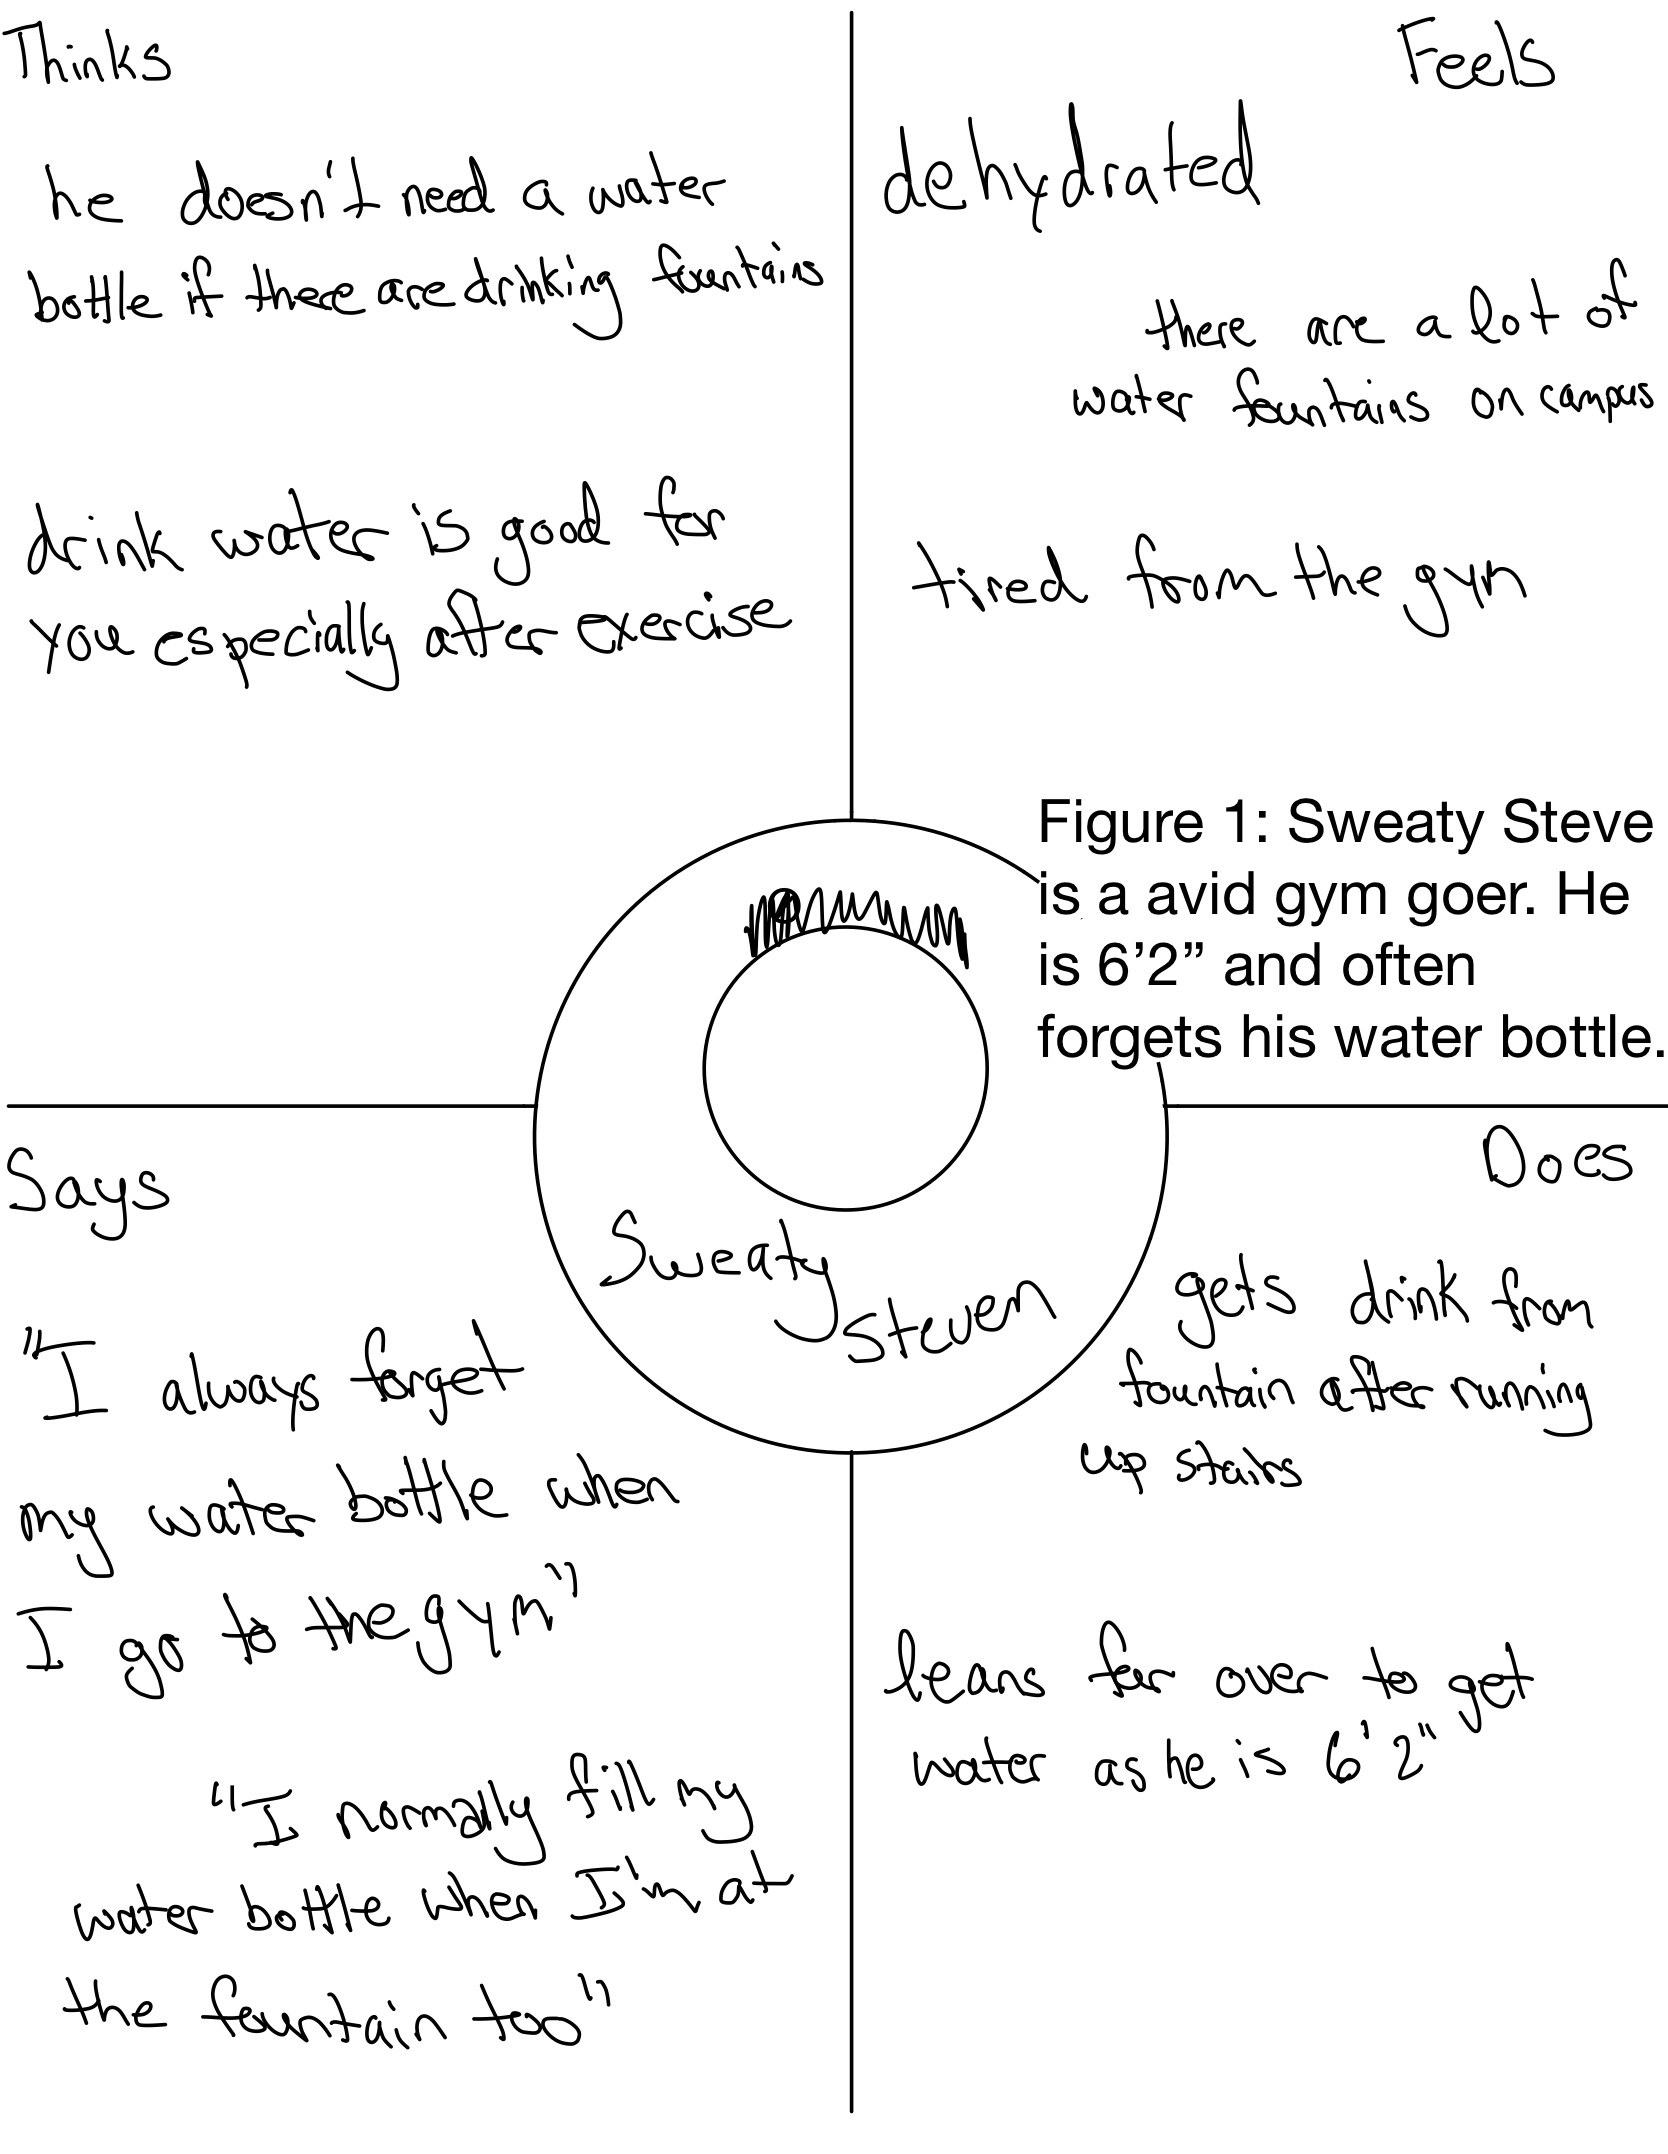 Thinks
he doesn't need a water
bottle if there are drinking fountains
drink water is good for
you especially after exercise
Feels
dehydrated
there are a lot of
water fountains on campus
tired from the gym
Figure 1: Sweaty Steve
is a avid gym goer. He
is 6’2” and often
forgets his water bottle.
Sweaty
Steven
Says
"I always forget
my water bottle when
I go to the gym"
"I normally fill my
water bottle when I'm at
the fountain too"
Does
gets drink from
fountain after running
up stairs
leans far over to get
water as he is 6'2"